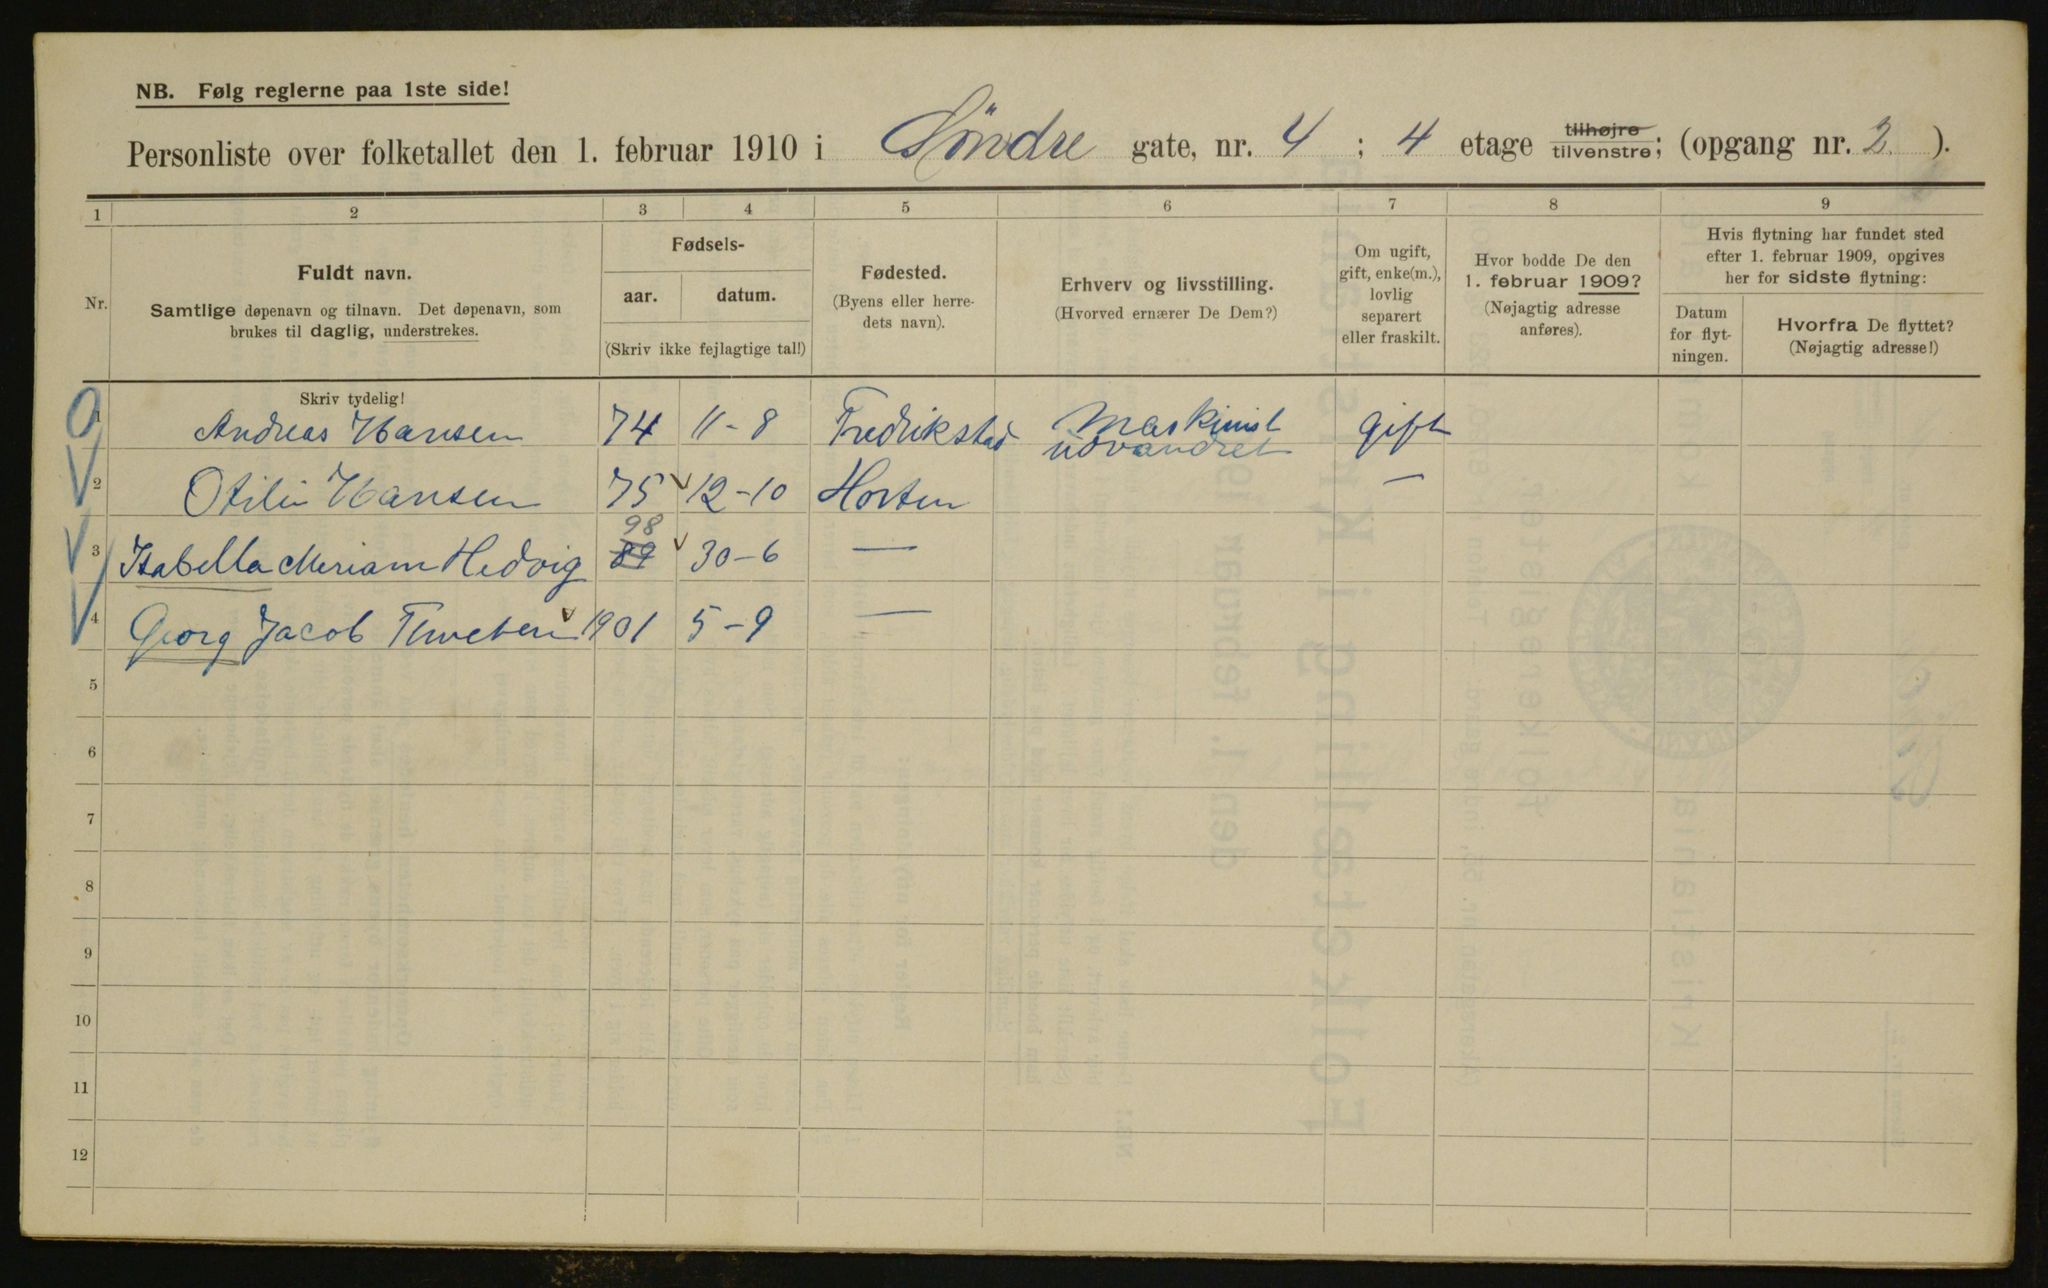 NB. Følg reglerne paa 1ste side!
Personliste over folketallet den 1. februar 1910 i Söndre gate, nr. 4 ; 4 etage tilhøjre tilvenstre; (opgang nr. 2 ).
1 2 3 4 5 6 7 8 9
Nr.
Fuldt navn.
Samtlige døpenavn og tilnavn. Det døpenavn, som
brukes til daglig, understrekes.
Fødsels-
aar. datum.
(Skriv ikke fejlagtige tal!)
Fødested.
(Byens eller herre-
dets navn).
Erhverv og livsstilling.
(Hvorved ernærer De Dem?)
Om ugift,
gift, enke(m.),
lovlig
separert
eller fraskilt.
Hvor bodde De den
1. februar 1909?
(Nøjagtig adresse
anføres).
Hvis flytning har fundet sted
efter 1. februar 1909, opgives
her for sidste flytning:
Datum
for flyt-
ningen.
Hvorfra De flyttet?
(Nøjagtig adresse!)
Skriv tydelig!
1 Andreas Hansen 74 11-8 Fredrikstad Maskinist gift
udvandret
2 Otilie Hansen 75 12-10 Horten —
98
3 Isabella Miriam Hedvig 89 30-6 —
4 Georg Jacob 1901 5-9 —
5
6
7
8
9
10
11
12